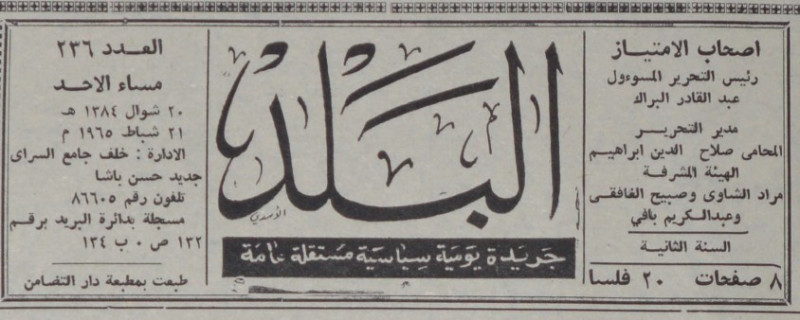 اصحاب الامتياز
رئيس التحرير المسوءول
عبد القادر البراك
مدير التحرير
المحامى صلاح الدين ابراهيم
الهيئة المشرفة
مراد الشاوى وصبيح الغافقى
وعبدالكريم بافي
السنة الثانية
٨ صفحات ٢٠ فلسا
البلد
الأسدي
جريدة يومية سياسية مستقلة عامة
العدد ٢٣٦
مساء الاحد
٢٠ شوال ١٣٨٤ هـ
٢١ شباط ١٩٦٥ م
الادارة : خلف جامع السراى
جديد حسن باشا
تلفون رقم ٨٦٦٠٥
مسجلة بدائرة البريد برقم
١٢٢ ص ٠ ب ١٣٤
طبعت بمطبعة دار التضامن